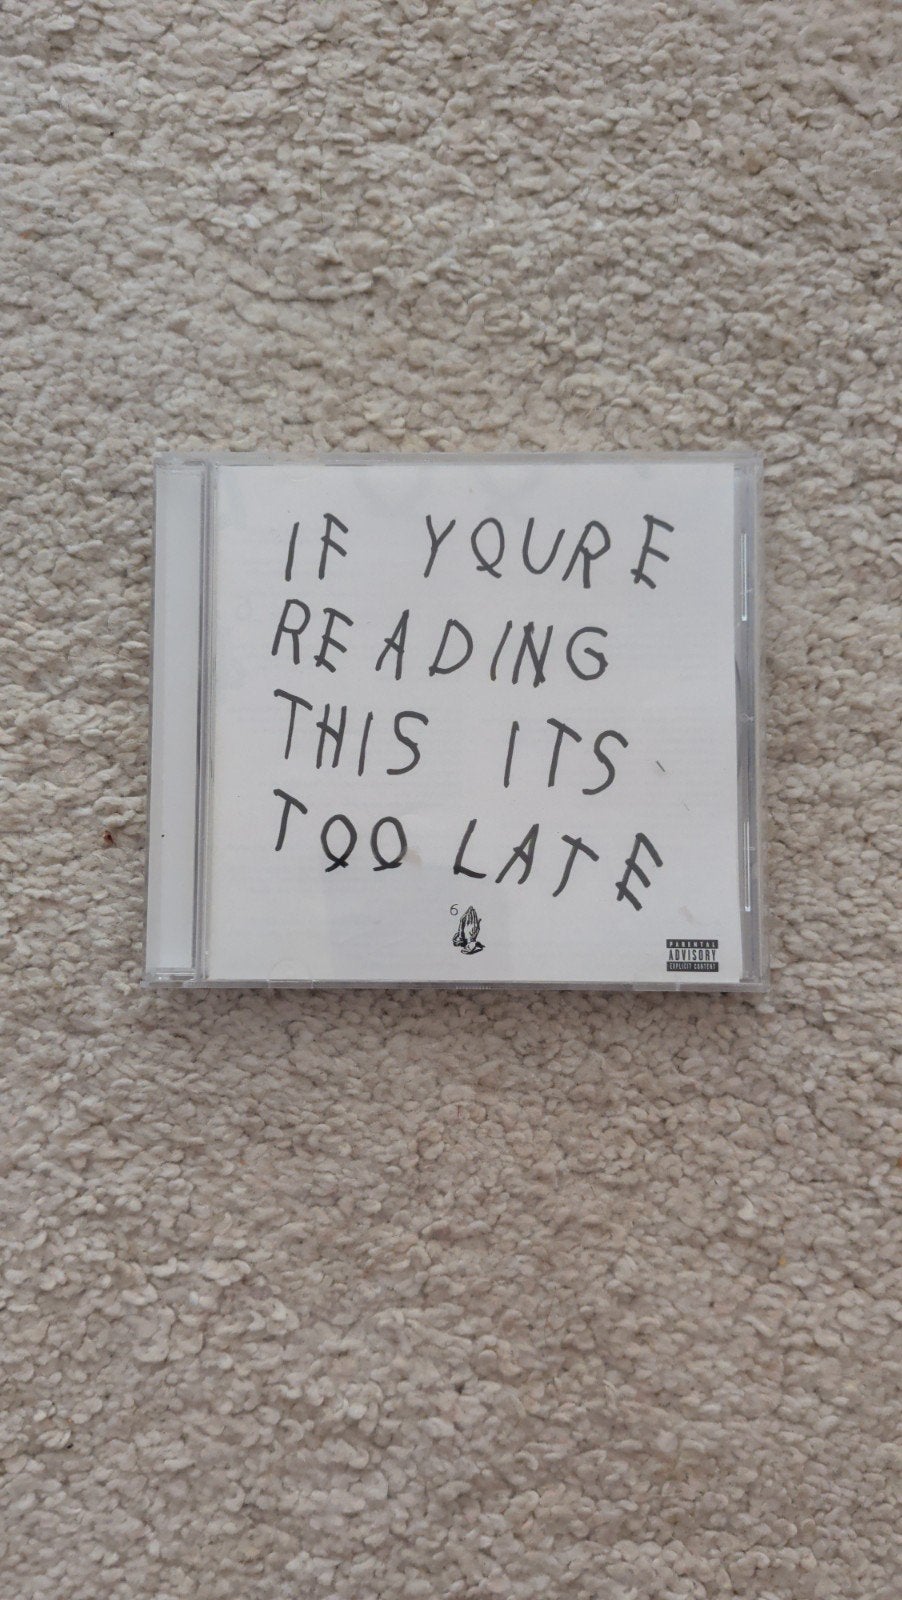 IF YOURE
READING
THIS ITS
TOO LATE
6
PARENTAL
ADVISORY
EXPLICIT CONTENT